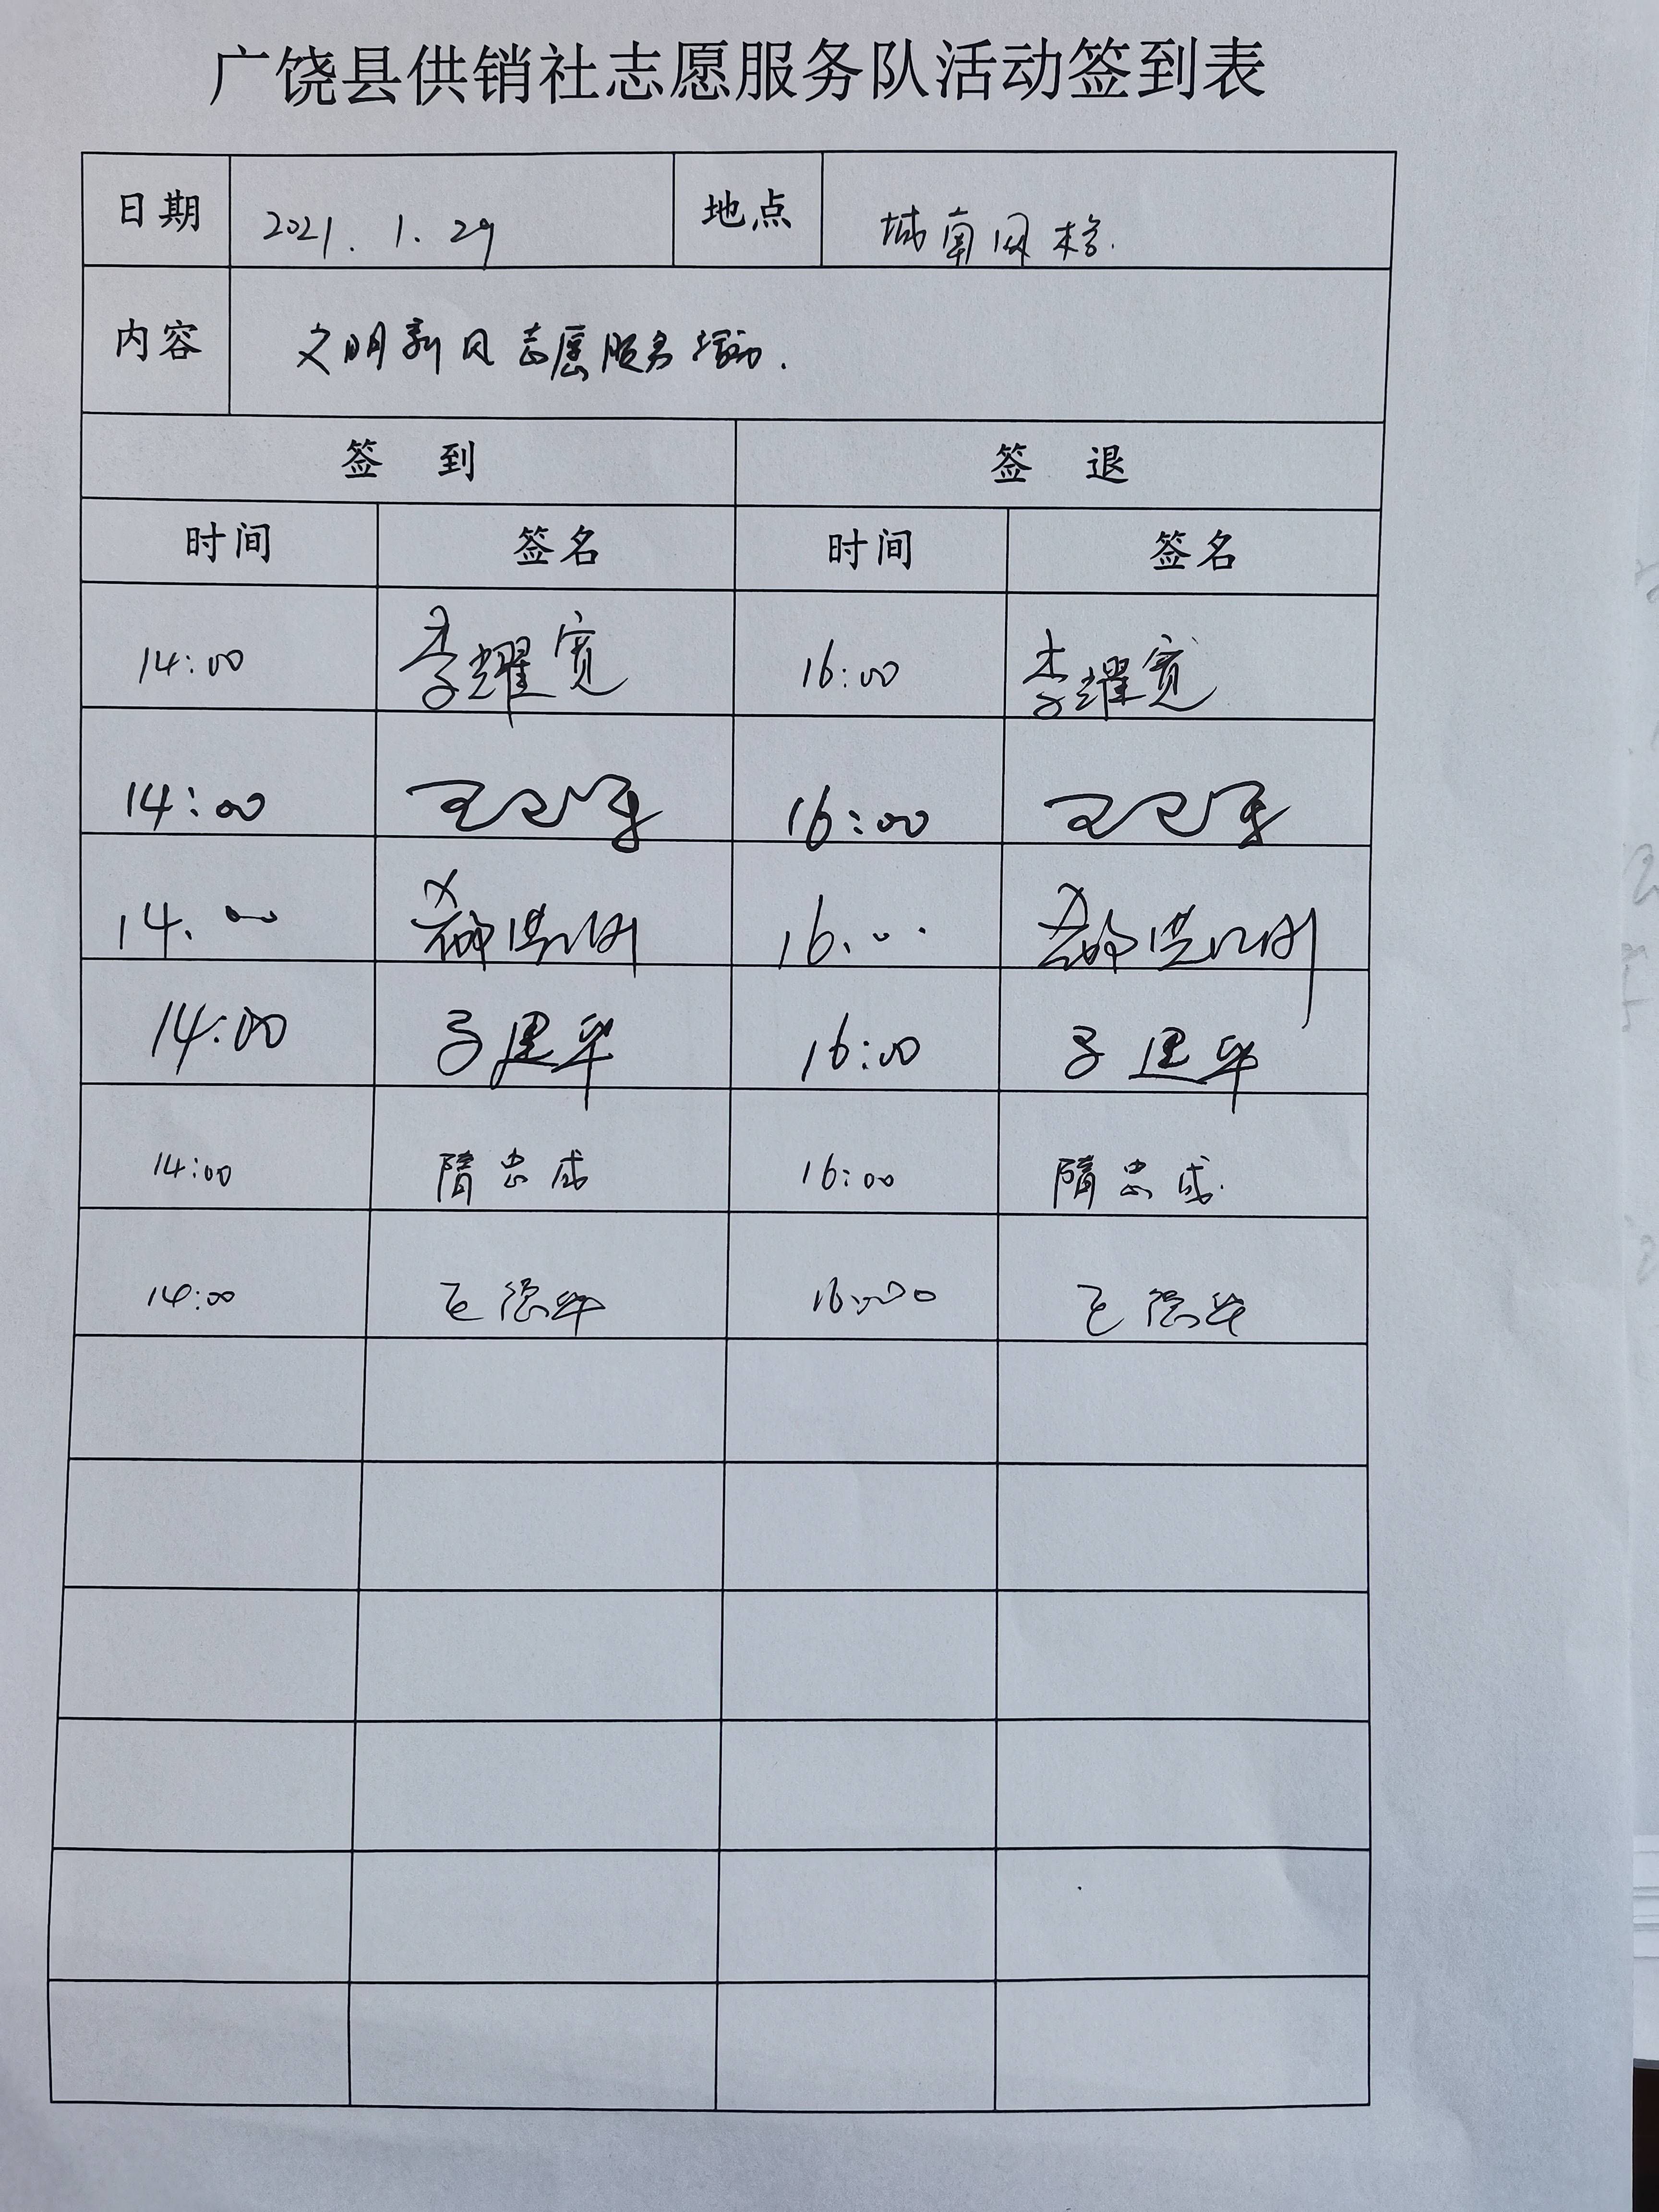 广饶县供销社志愿服务队活动签到表
日期 2021.1.29 地点 城南网格.
内容 文明新风志愿服务活动.
签 到 签 退
时间 签名 时间 签名
14:00 李耀宽 16:00 李耀宽
14:00 16:00
14:00 16:00
14:00 16:00
14:00 隋忠成 16:00 隋忠成.
14:00 王德华 16:00 王德华